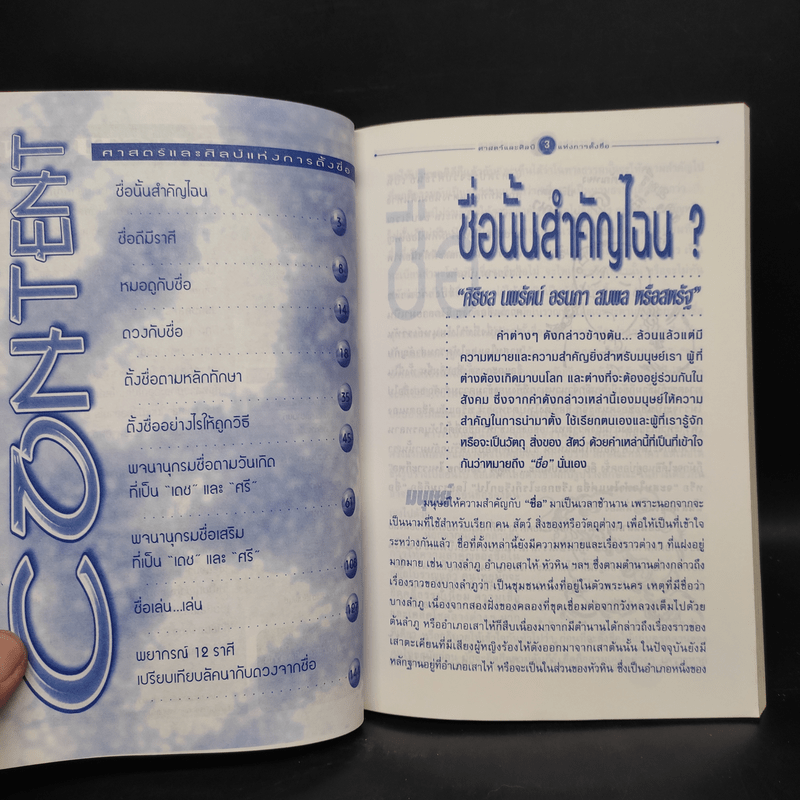 CONTENT
ศาสตร์และศิลป์แห่งการตั้งชื่อ
ชื่อนั้นสำคัญไฉน
3
ชื่อดีมีราศี
8
หมอดูกับชื่อ
14
ดวงกับชื่อ
18
ตั้งชื่อตามหลักทักษา
39
ตั้งชื่ออย่างไรให้ถูกวิธี
45
พจนานุกรมชื่อตามวันเกิด
ที่เป็น "เดช" และ "ศรี"
61
พจนานุกรมชื่อเสริม
ที่เป็น "เดช" และ "ศรี"
ชื่อเล่น...เล่น
พยากรณ์ 12 ราศี
เปรียบเทียบลัคนากับดวงจากชื่อ
ศาสตร์และศิลป์ 3 แห่งการตั้งชื่อ
ชื่อนั้นสำคัญไฉน ?
"ศิริชล นพรัตน์ อรนภา สมพล หรือสหรัฐ"
คำต่างๆ ดังกล่าวข้างต้น... ล้วนแล้วแต่มี
ความหมายและความสำคัญยิ่งสำหรับมนุษย์เรา ผู้ที่
ต่างต้องเกิดมาบนโลก และต่างที่จะต้องอยู่ร่วมกันใน
สังคม ซึ่งจากคำดังกล่าวเหล่านี้เองมนุษย์ให้ความ
สำคัญในการนำมาตั้ง ใช้เรียกตนเองและผู้ที่เรารู้จัก
หรือจะเป็นวัตถุ สิ่งของ สัตว์ ด้วยคำเหล่านี้ที่เป็นที่เข้าใจ
กันว่าหมายถึง "ชื่อ" นั่นเอง
มนุษย์ให้ความสำคัญกับ "ชื่อ" มาเป็นเวลาช้านาน เพราะนอกจากจะ
เป็นนามที่ใช้สำหรับเรียก คน สัตว์ สิ่งของหรือวัตถุต่างๆ เพื่อให้เป็นที่เข้าใจ
ระหว่างกันแล้ว ชื่อที่ตั้งเหล่านี้ยังมีความหมายและเรื่องราวต่างๆ ที่แฝงอยู่
มากมาย เช่น บางลำภู อำเภอเสาไห้ หัวหิน ฯลฯ ซึ่งตามตำนานต่างกล่าวถึง
เรื่องราวของบางลำภูว่า เป็นชุมชนหนึ่งที่อยู่ในตัวพระนคร เหตุที่มีชื่อว่า
บางลำภู เนื่องจากสองฝั่งของคลองที่ขุดเชื่อมต่อจากวังหลวงเต็มไปด้วย
ต้นลำภู หรืออำเภอเสาไห้ก็สืบเนื่องมาจากมีตำนานได้กล่าวถึงเรื่องราวของ
เสาตะเคียนที่มีเสียงผู้หญิงร้องไห้ดังออกมาจากเสาต้นนั้น ในปัจจุบันยังมี
หลักฐานอยู่ที่อำเภอเสาไห้ หรือจะเป็นในส่วนของหัวหิน ซึ่งเป็นอำเภอหนึ่งของ